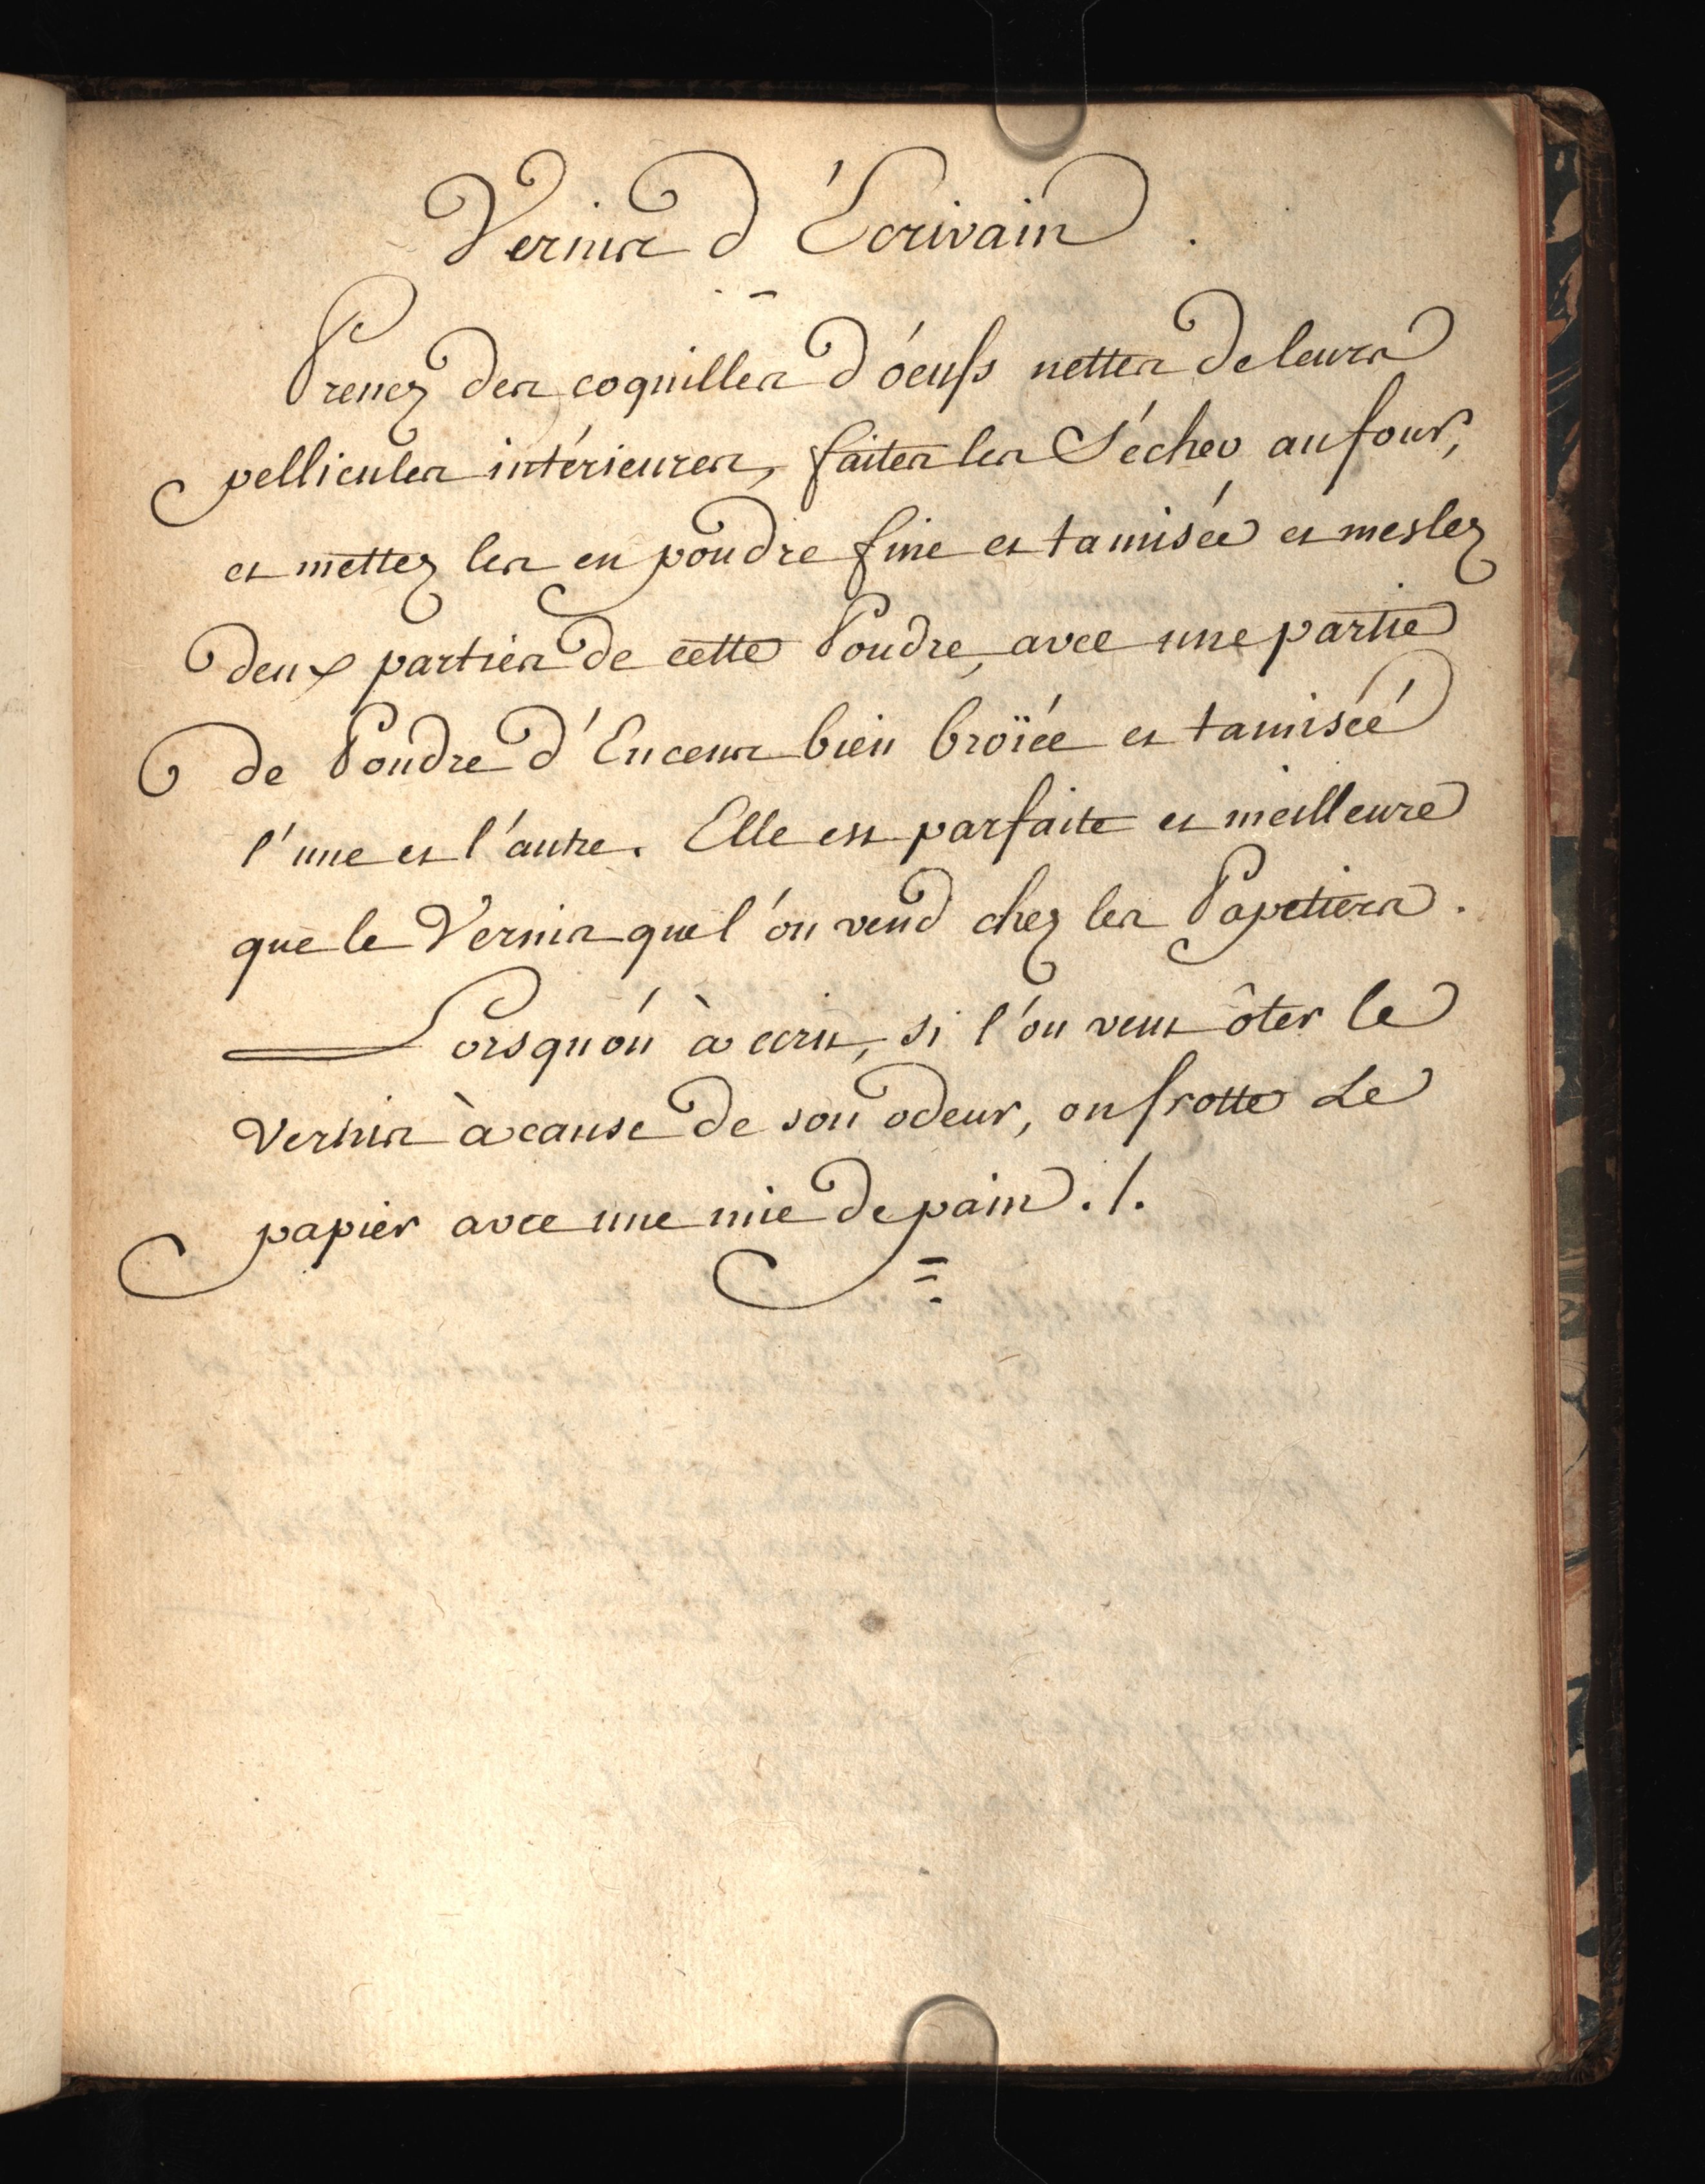 Vernis d'Ecrivain.
Prenez des coquilles d'óeufs nettes de leurs
pellicules intérieures, faites les Sécher au four,
et mettez les en poudre fine et tamisée et meslez
deux parties de cette Poudre, avec une partie
de Poudre d'Encens bien broïée et tamisée
l'une et l'autre. Elle est parfaite et meilleure
que le Vernis que l'on vend chez les Papetiers.
Lorsqu'on à ecrit, si l'on veut ôter le
Vernis à cause de son odeur, on frotte Le
papier avec une mie de pain ./.